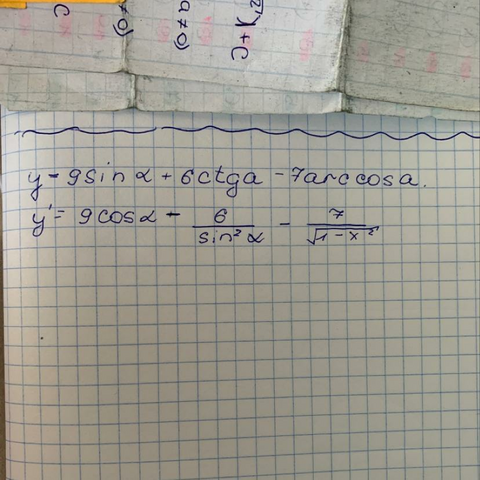 ≠0)
C
a≠0)
+ C
y = 9sin α + 6ctga - 7arccosa.
y' = 9cosα - 6/sin²α - 7/√1-x²